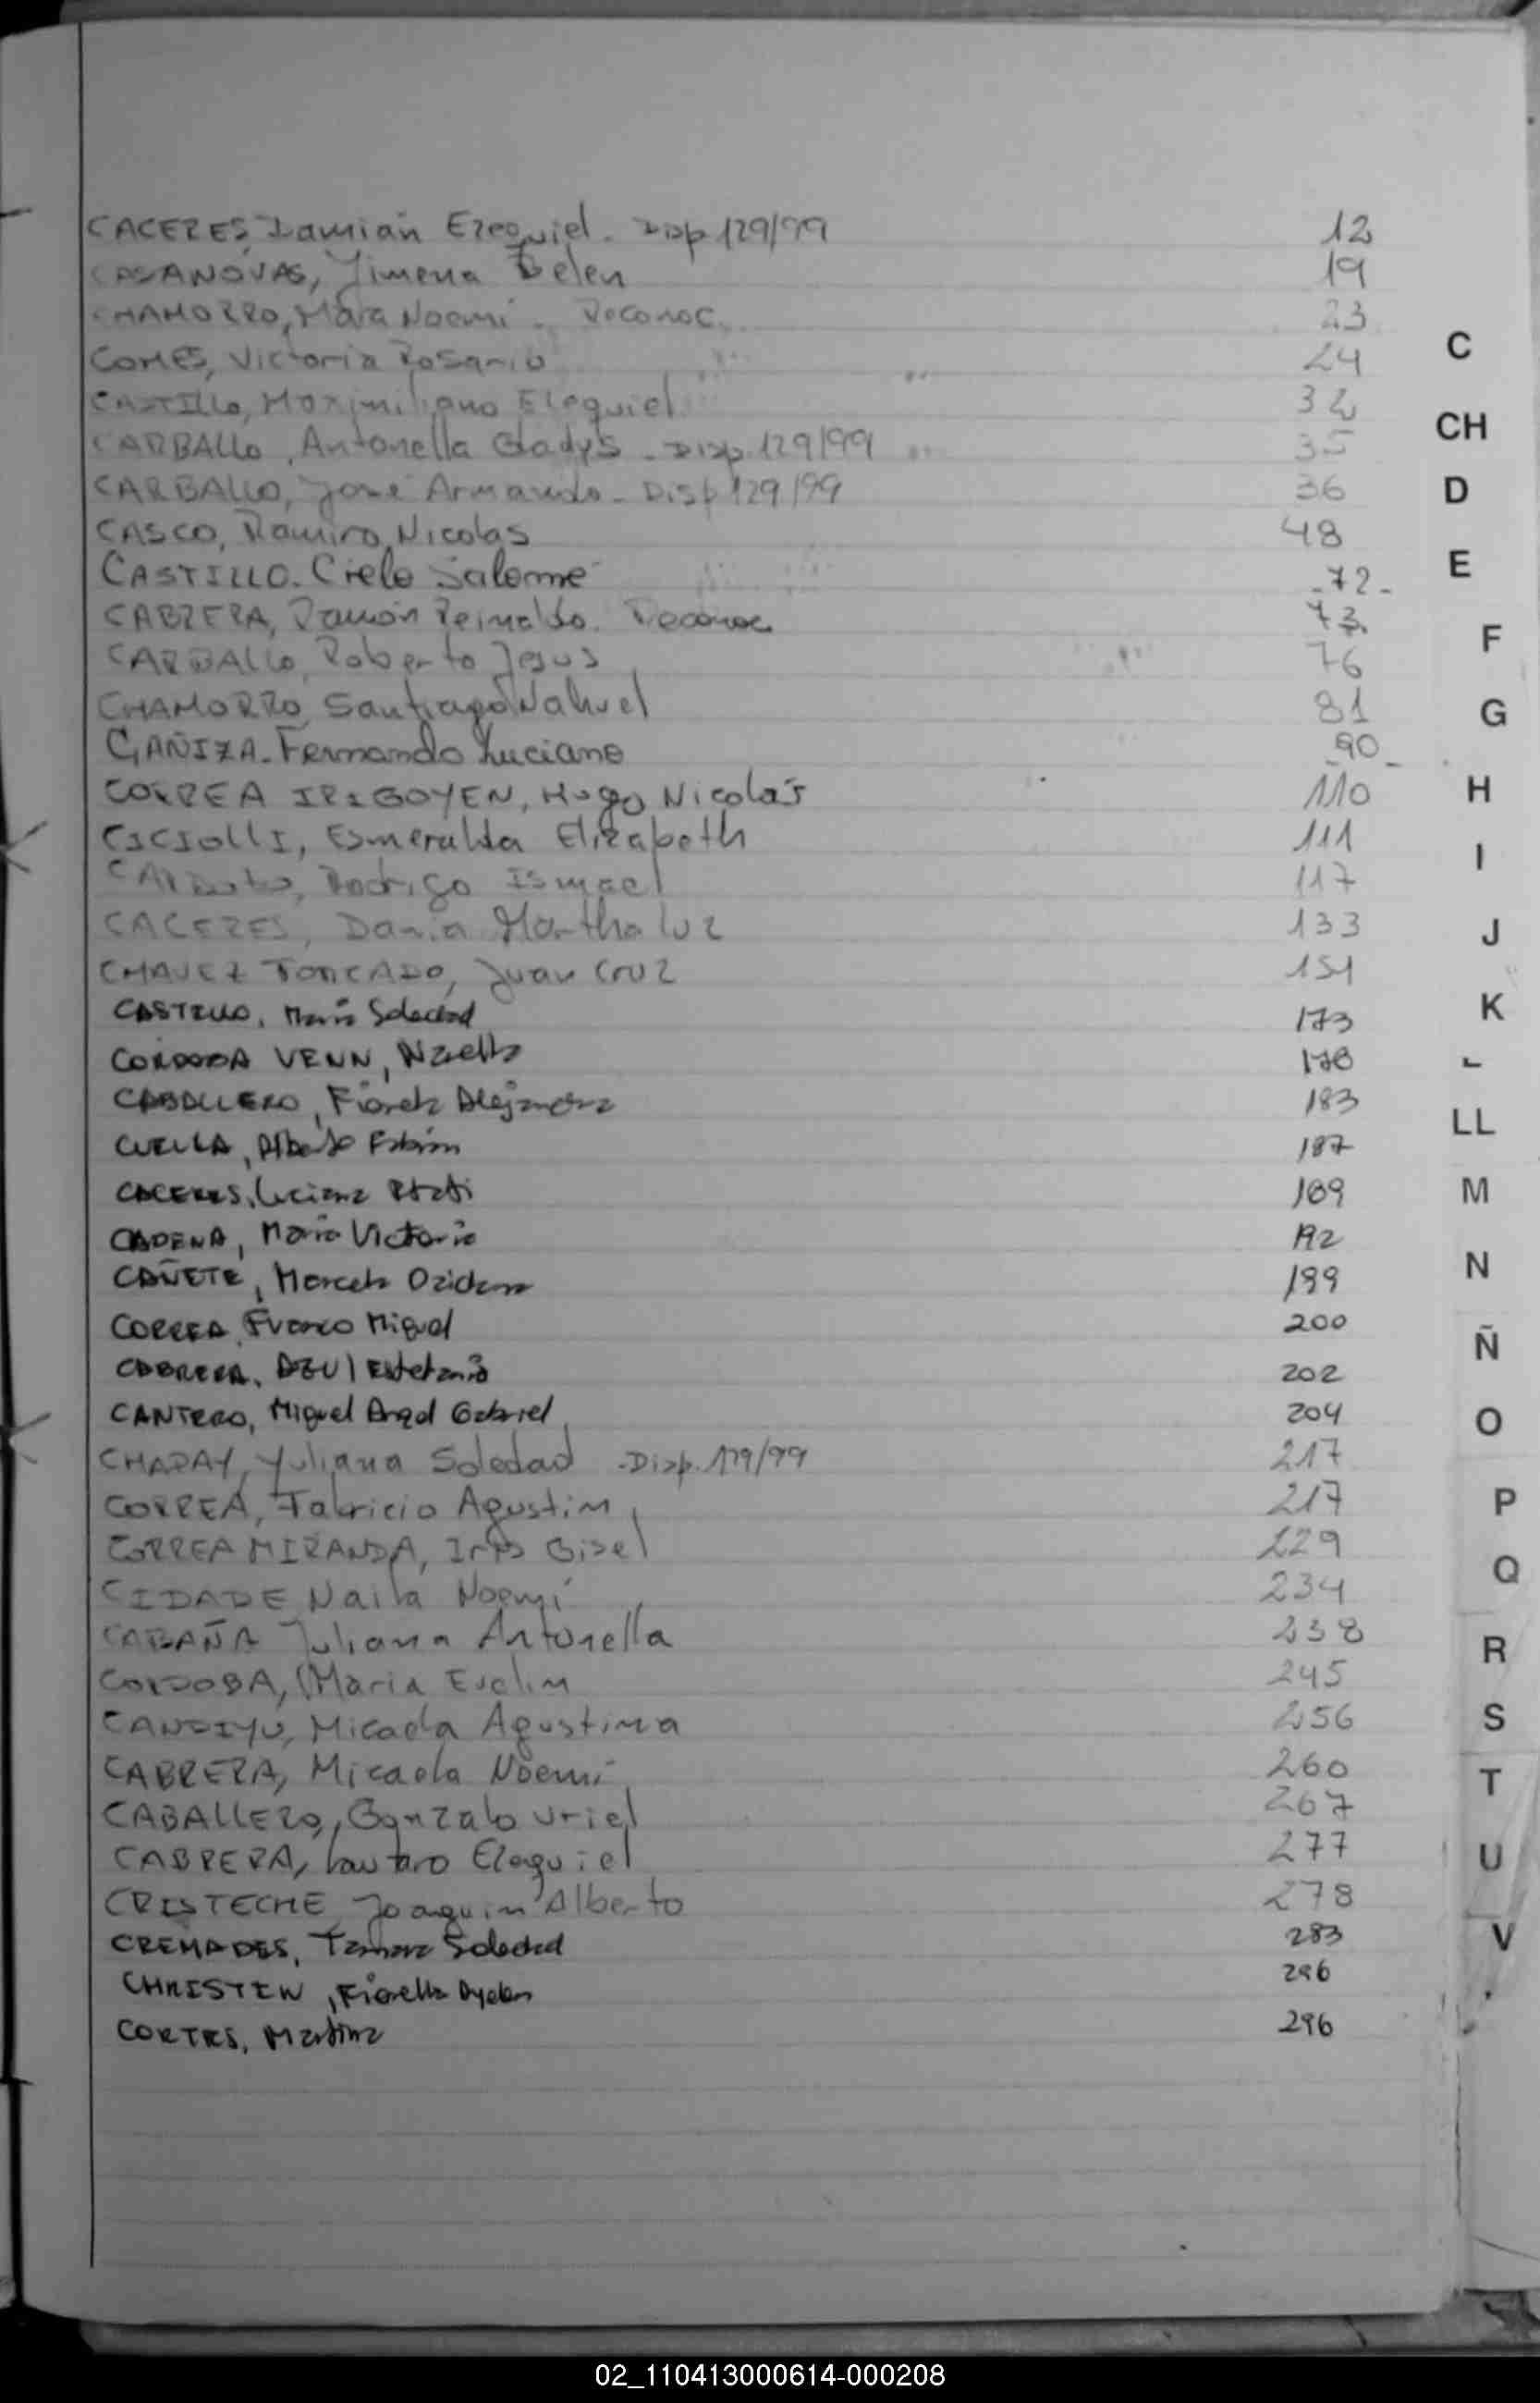 CACERES, Damián Ezequiel. Disp 129/99 12
CASANOVAS, Jimena Belen 19
CHAMORRO, Mara Noemi. Reconoc. 23
COMES, Victoria Rosario 24
CASTILLO, Maximiliano Ezequiel 32
CARBALLO, Antonella Gladys - Disp. 129/99 35
CARBALLO, José Armando - Disp 129/99 36
CASCO, Ramiro Nicolas 48
CASTILLO. Cielo Salomé -72-
CABRERA, Ramón Reinaldo. Reconoc 73.
CARBALLO, Roberto Jesus 76
CHAMORRO, Santiago Nahuel 81
CAÑIZA - Fernando Luciano 90-
CORREA IRIGOYEN, Hugo Nicolás 110
CICIOLLI, Esmeralda Elizabeth 111
Rodrigo Ismael 117
CACERES, Dania Martha luz 133
CHAVEZ Juan Cruz 151
CASTILLO, María Soledad 173
CORDOBA VENN, 178
CABALLERO, Alejandra 183
Alberto Fabián 187
CACERES, Luciana 189
CADENA, María Victoria 192
CAÑETE, Marcela 199
CORREA, Franco Miguel 200
CABRERA, AZUl Estefanía 202
CANTERO, Miguel Angel Gabriel 204
Yuliana Soledad - Disp. 129/99 217
CORREA, Fabricio Agustin 217
CORREA MIRANDA, Iris Gisel 229
CIDADE Naila Noemí 234
CABAÑA Juliana Antonella 238
CORDOBA, Maria Evelin 245
Micaela Agustina 256
CABRERA, Micaela Noemí 260
CABALLERO, Gonzalo Uriel 267
CABRERA, Lautaro Ezequiel 277
CRISTECHE Joaquin Alberto 278
CREMADES, Tamara Soledad 283
CHRISTEN, Fiorella Ayelen 296
CORTES, Martina 296
C
CH
D
E
F
G
H
I
J
K
L
LL
M
N
Ñ
O
P
Q
R
S
T
U
V
02_110413000614-000208